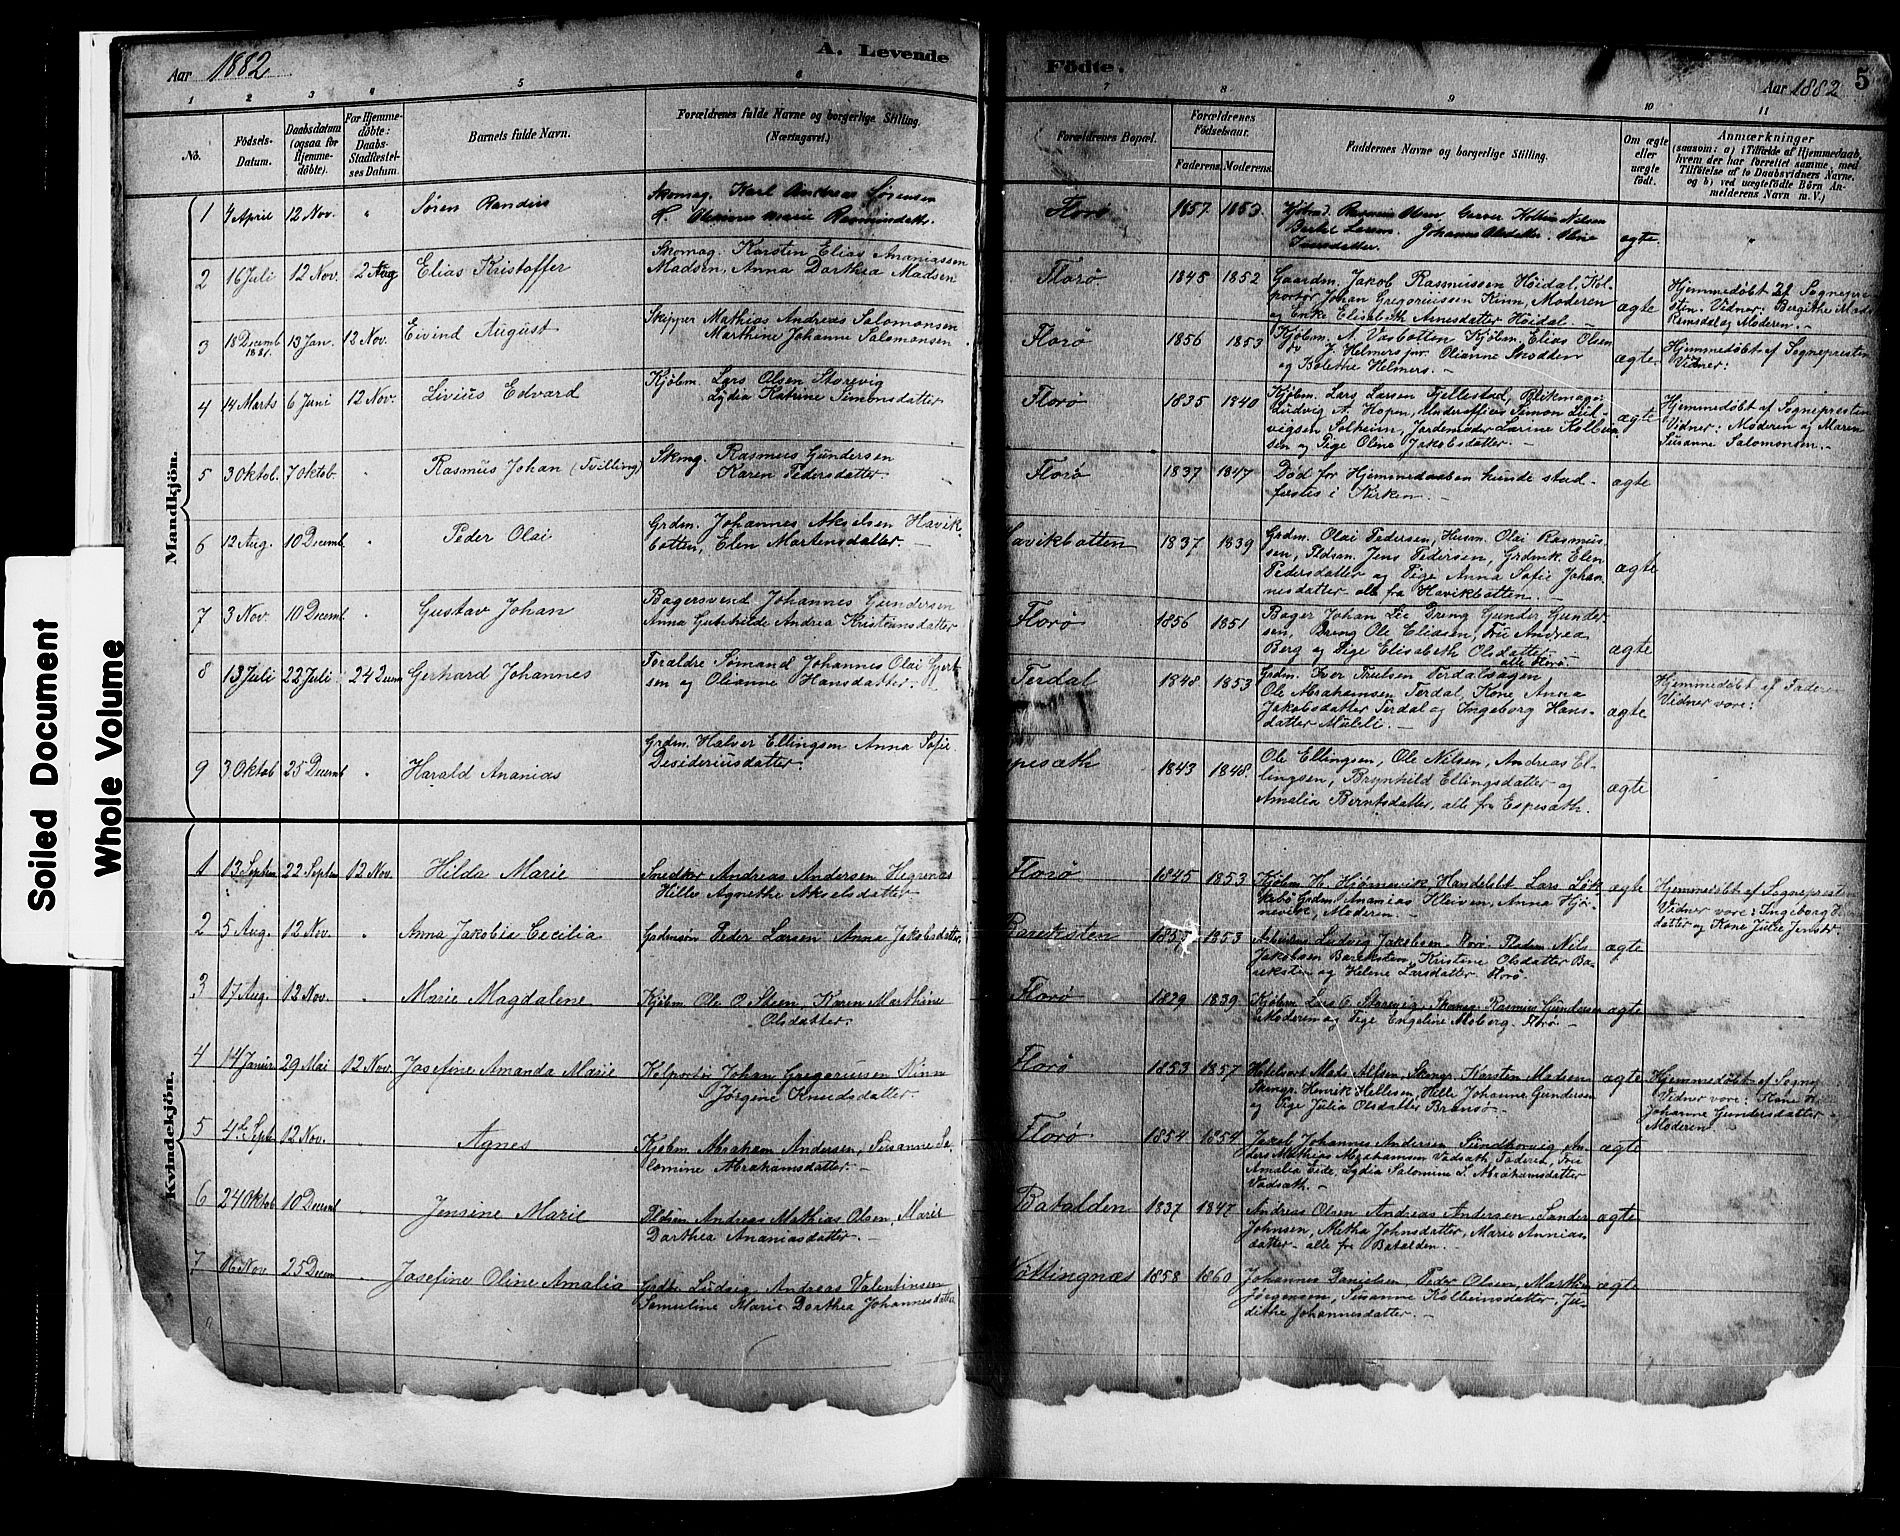 Soiled Document
Whole Volume
A. Levende Födte.
5
Aar 1882
Aar 1882
1 2 3 4 5 6 7 8 9 10 11
No.
Födsels-Datum.
Daabsdatum (ogsaa for Hjemmedöbte).
For Hjemmedöbte: Daabs-Stadfæstelses Datum.
Barnets fulde Navn.
Forældrenes fulde Navne og borgerlige Stilling. (Næringsvei.)
Forældrenes Bopæl.
Forældrenes Födselsaar.
Faderens
Moderens
Faddernes Navne og borgerlige Stilling.
Om ægte eller uægte födt.
Anmærkninger
(saasom: a) i Tilfælde af Hjemmedaab, hvem der har forrettet samme, med Tilföielse af to Daabsvidners Navne, og b) ved uægtefödte Börn Anmelderens Navn m. V.)
Mandkjön.
1 4 April 12 Nov. " Søren Randius
Skomag. Karl Andreas Sørensen
Florø 1857 1853
ægte "
2 16 Juli 12 Nov. 2 Aug Elias Kristoffer
Skomag. Karsten Elias Ananiassen
Madsen, Anna Dorthea Madsen
Florø 1845 1852
Gaardm. Jakob Rasmussen Höidal, Kol-
portør Johan Gregoriussen Kinn, Moderen
og Enke Elisabeth Arnesdatter Höidal. —
ægte
Hjemmedøbt af Sognepre-
sten. Vidner: Bergithe Mads
Remsdal og Moderen. —
3 18 Decemb 1881. 13 Jan. 12 Nov. Eivind August
Skipper Mathias Andreas Salomonsen
Marthine Johanne Salomonsen
Florø 1856 1853
Kjøbm. A. Vasbotten Kjøbm. Elias Olsen
J. Helmers jnr. Olianne Snodden
og Bolethe Helmers. —
ægte.
Hjemmedøbt af Sognepresten
Vidner:
4 14 Marts 6 Juni 12 Nov. Livius Edvard
Kjøbm. Lars Olsen Storevig
Lydia Katrine Simonsdatter
Florø 1835 1840
Kjøbm. Lars Larsen Fjellestad, Blikmager
Ludvig A. Hopen, Underofficer Simon Lud-
vigsen Solheim, Jordemoder Larine Kolbein
sen og Pige Oline Jakobsdatter. —
ægte
Hjemmedøbt af Sognepresten
Vidner: Moderen og Maren
Susanne Salomonsen. —
5 3 Oktob. 7 Oktob. " Rasmus Johan (Tvilling)
Skmg. Rasmus Gundersen
Karen Pedersdatter.
Florø 1837 1847
Død før Hjemmedaaben kunde stad-
fæstes i Kirken. —
ægte
6 12 Aug. 10 Decemb. " Peder Olai
Grdm. Johannes Akselsen Havik-
botten, Elen Martensdatter. —
Havikbotten 1837 1839
Grdm. Olai Pedersen, Husm. Olai Rasmus-
sen, Pldsm. Jens Pedersen, Grdmk. Elen
Pedersdatter og Pige Anna Sofie Johan-
nesdatter, alle fra Havikbotten. —
ægte
7 3 Nov. 10 Decemb. " Gustav Johan
Bagersvend Johannes Gundersen
Anna Gunhilde Andrea Kristensdatter
Florø 1856 1851
Bager Johan Lie Dreng Gunder Gunder-
sen, Dreng Ole Eliasen, Frue Andrea
Berg og Pige Elisabeth Olsdatter
alle Florø. —
ægte
8 13 Juli 22 Juli 24 Decem Gerhard Johannes
Forældre Sømand Johannes Olai Gjert-
sen og Olianne Hansdatter. —
Terdal 1848 1853
Grdm. Iver Truelsen Terdalsøgen
Ole Abrahamsen Terdal, Kone Anna
Jakobsdatter Terdal og Ingeborg Hans-
datter Muleli. —
ægte
Hjemmedøbt af Faderen
Vidner vore:
9 3 Oktob 25 Decemb " Harald Ananias
Grdm. Halver Ellingsen Anna Sofie
Desideriusdatter.
spesæth 1843 1848
Ole Ellingsen, Ole Nilsen, Andreas El-
lingsen, Brynhild Ellingsdatter og
Amalia Berntsdatter, alle fra Espesæth.
ægte
Kvindekjön.
1 13 Septem 22 Septem 12 Nov. Hilda Marie
Snedker Andreas Andersen Hegrenæs
Hille Agnethe Akselsdatter
Florø 1845 1853
Kjøbm H. Hjörnevik Handelsbt Lars Løk-
kebø Grdm. Ananias Kleiven, Anna Hjör-
nevik, Moderen. —
ægte
Hjemmedøbt af Sognepresten
Vidner vore: Ingeborg
datter og Kone Julie
2 5 Aug. 12 Nov. " Anna Jakobia Cecilia
Gadensön Peder Larsen Anna Jakobsdatter
Bareksten 1853
Arbeidsm. Ludvig Jakobsen Florø. Pladsm Nils
Jakobsen Bareksten, Kristine Olsdatter Ba-
reksten og Helene Larsdatter Florø.
ægte
3 17 Aug. 12 Nov. " Marie Magdalene
Kjøbm Ole O. Steen, Karen Marthine
Olsdatter.
Florø 1829 1839
Kjøbm Lars O. Storevig, Skomag. Rasmus Gundersen
Moderen og Pige Engeline Moberg. Florø —
ægte
4 14 Januar 29 Mai 12 Nov. Josefine Amanda Marie
Kolportør Johan Gregoriusen Kinn
Jörgine Knudsdatter.
Florø 1853 1857
Hotelvert Mads Allsen, Skmgr. Karsten Madsen
Skmgr. Henrik Hellesen, Hille Johanne Gundersen
og Pige Julia Olsdatter Bransø —
ægte
Hjemmedøbt af Sogne
Vidner vore: Kone
Johanne Gundersdatter
Moderen
5 4de Septb. 12 Nov. " Agnes
Kjøbm Abraham Andersen, Susanne Sa-
lomine Abrahamsdatter. —
Florø 1854 1854
Jakob Johannes Andersen Sundkorvig An-
ders Mathias Abrahamsen Vadsæth, Faderen, Frue
Amalia Eide, Lydia Salomine S. Abrahamsdatter
Vadsæth. —
ægte
6 24 Oktob 10 Decemb " Jensine Marie
Pldsm Andreas Mathias Olsen, Marie
Dorthea Ananiasdatter. —
Batalden 1837 1847
Andreas Olsen Andreas Andersen, Sander
Johnsen, Metha Johnsdatter, Marie Annias-
datter — alle fra Batalden. —
ægte
7 16 Nov 25 Decem " Josefine Oline Amalia
Grdbr. Ludvig Andreas Valentinsen
Semuline Marie Dorthea Johannesdatter
Nöttingnæs 1858 1860
Johannes Danielsen Peder Olsen, Marthin
Jørgensen, Susanne Kolbeinsdatter, Ju-
dithe Johannesdatter. —
ægte